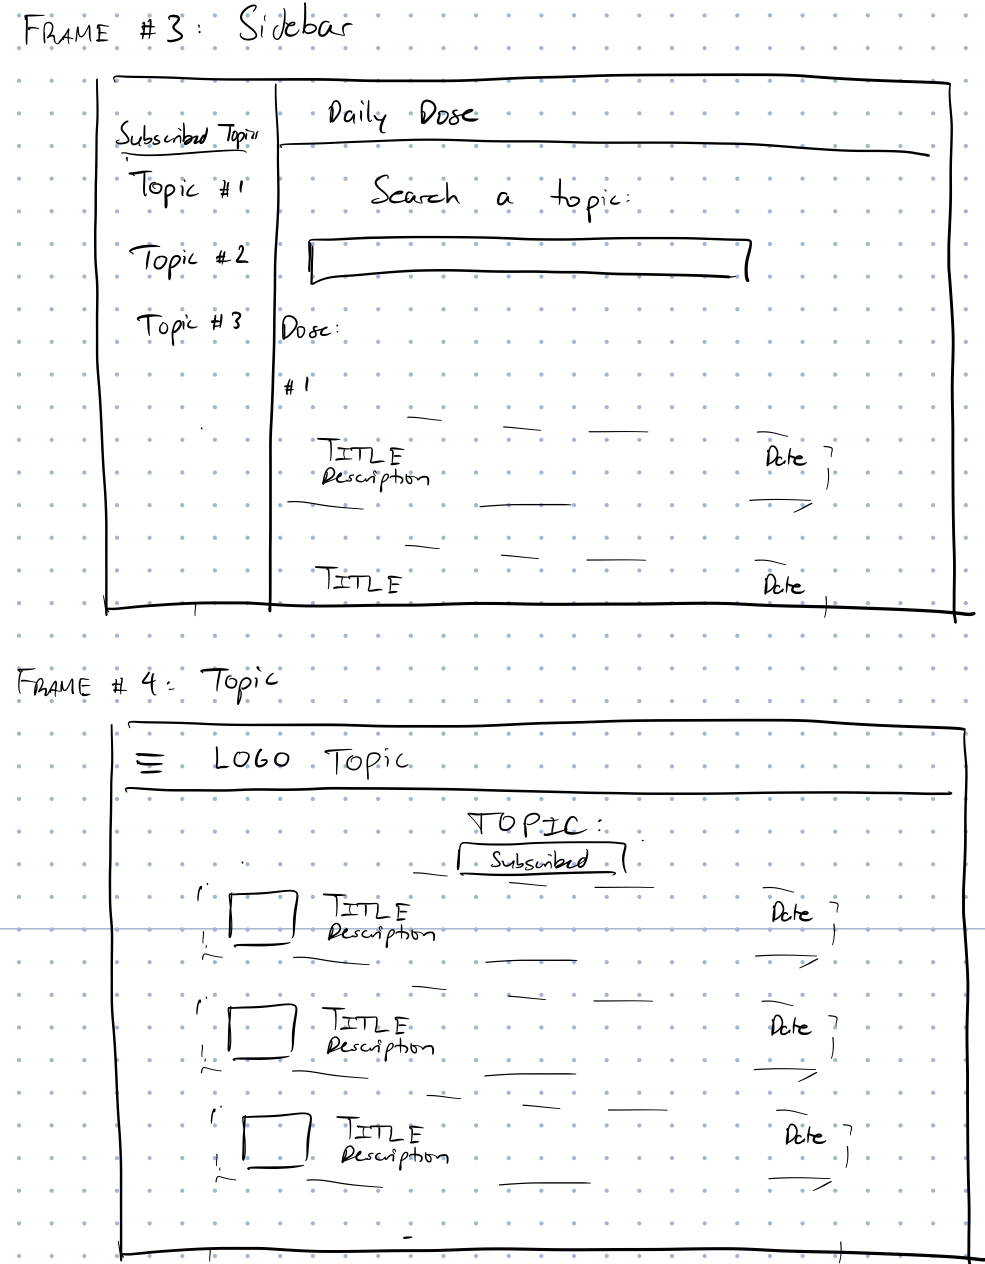 FRAME #3: Sidebar
Daily Dose
Subscribed Topics
Topic #1
Topic #2
Topic #3
Search a topic:
Dose:
#1
TITLE
Description
Date
TITLE
Date
FRAME #4: Topic
LOGO Topic
TOPIC:
Subscribed
TITLE
Description
Date
TITLE
Description
Date
TITLE
Description
Date